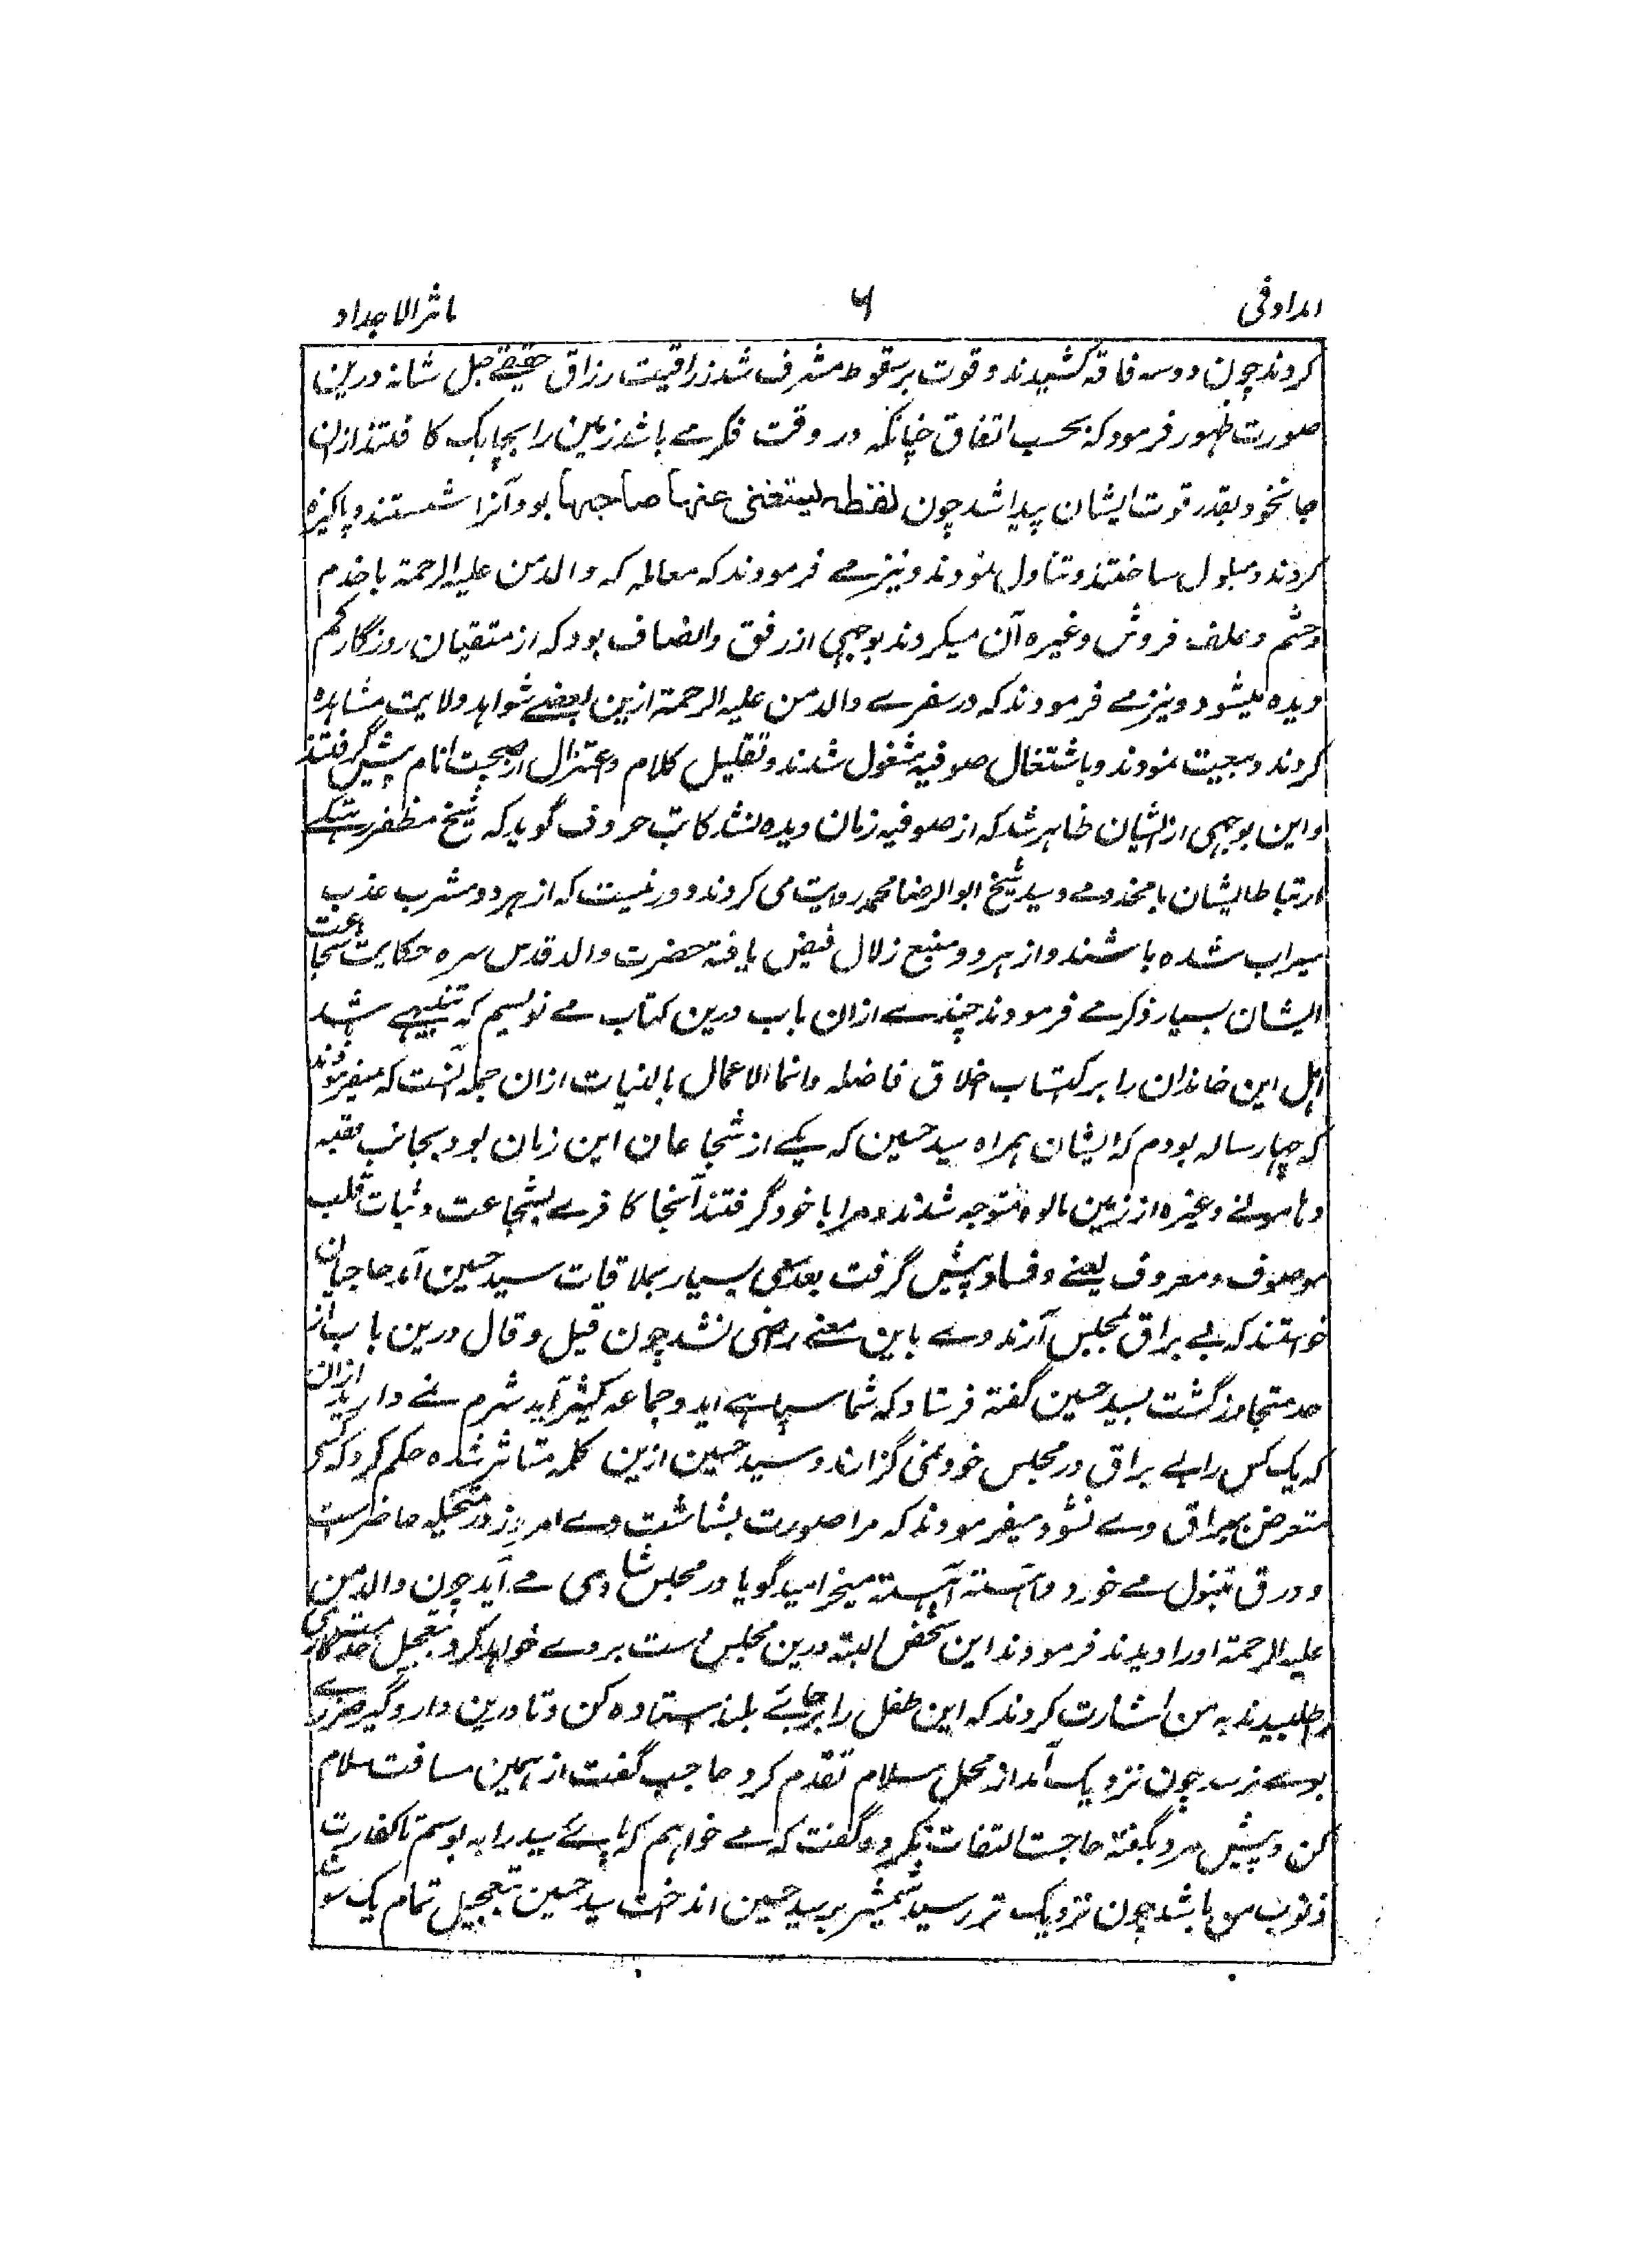 امداد فی ۶ ماثر الاجداد
کردند چون دو سه فاقه کشیدند و قوت بر سقوط مشرف شد رزاقیت رزاق حقیقے جل شانه درین
صورت ظهور فرمود که بحسب اتفاق چنانکه در وقت فکر مے باشد زمین را بچابک کافتند ازان
جا نخود بقدر قوت ایشان پیدا شد چون لقطه یستغنی عنها صاحبها بود آنرا شستند و پاکیزه
کردند و مبلول ساختند و تناول نمودند و نیز مے فرمودند که معامله که والد من علیه الرحمة با خدم
وحشم و علف فروش و غیره آن میکردند بوجهی از رفق و انصاف بود که از متقیان روزگار کم
دیده میشود و نیز مے فرمودند که در سفرے والد من علیه الرحمة ازین بعضے شواهد ولایت مشاهده
کردند و بیعت نمودند و باشتغال صوفیه مشغول شدند و تقلیل کلام و اعتزال از صحبت انام پیش گرفتند
و این بوجهی از ایشان ظاهر شد که از صوفیه زمان دیده نشد کاتب حروف گوید که شیخ مظفر رہتکے
ارتباط ایشان با مخدومے و سید شیخ ابوالرضا محمد روایت می کردند و دور نیست که از هر دو مشرب عذب
سیراب شده باشند و از هر دو منبع زلال فیض یافته حضرت والد قدس سره حکایت شجاعت
ایشان بسیار ذکر مے فرمودند چندے ازان باب درین کتاب مے نویسم که تنبیهے شد
اهل این خاندان را بر کتساب اخلاق فاضله و انما الاعمال بالنیات ازان جمله آنست که میفرمودند
که چهار ساله بودم که ایشان همراه سید حسین که یکے از شجاعان این زمان بود بجانب قصبه
دهامونے و غیره از زمین مالوه متوجه شدند و مرا با خود گرفتند آنجا کافرے بشجاعت و ثبات قلب
موصوف و معروف بغے و فساد پیش گرفت بعد سعی بسیار بملاقات سید حسین آمد حاجبان
خواستند که بے یراق بمجلس آرند وے باین معنے راضی نشد چون قیل و قال درین باب از
حد متجاوز گشت بسید حسین گفته فرستاد که شما سپاهے اید و جماعه کثیر آید شرم نے دارید ازان
که یک کس را با یراق در مجلس خود نمی گزارند و سید حسین ازین کلمه متاثر شده حکم کرد که کسی
متعرض یراق وے نشود میفرمودند که مرا صورت بشاشت وے امروز در متخیله حاضرست
و ورق تنبول مے خورد و آهسته آهسته میخرامید گویا در مجلس شادی مے آید چون والد من
علیه الرحمة او را دیدند فرمودند این شخص البته درین مجلس دست بردے خواهد کرد بتعجیل خدمتگاری
را طلبیدند به من اشارت کردند که این طفل را بر جائے بلند استاده کن و تا درین دار و گیر ضررے
بوے نرسد چون نزدیک آمد از محل سلام تقدم کرد حاجب گفت از همین مسافت سلام
کن و پیش مرو بگفته حاجب التفات نکرد و گفت که مے خواهم که پائے سید را به بوسم تا کفارت
ذنوب من باشد چون نزدیک تر رسید شمشیر بر سید حسین انداخت سید حسین بتعجیل تمام یک سو شد